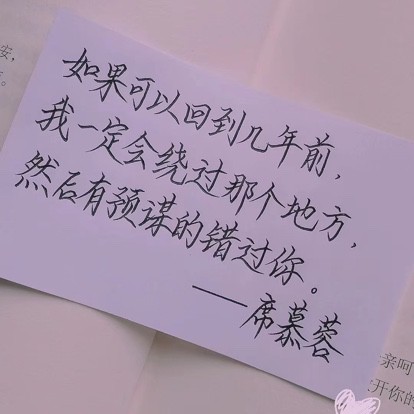 安，
如果可以回到几年前，
我一定会绕过那个地方，
然后有预谋的错过你。
——席慕蓉
亲呵
开你的